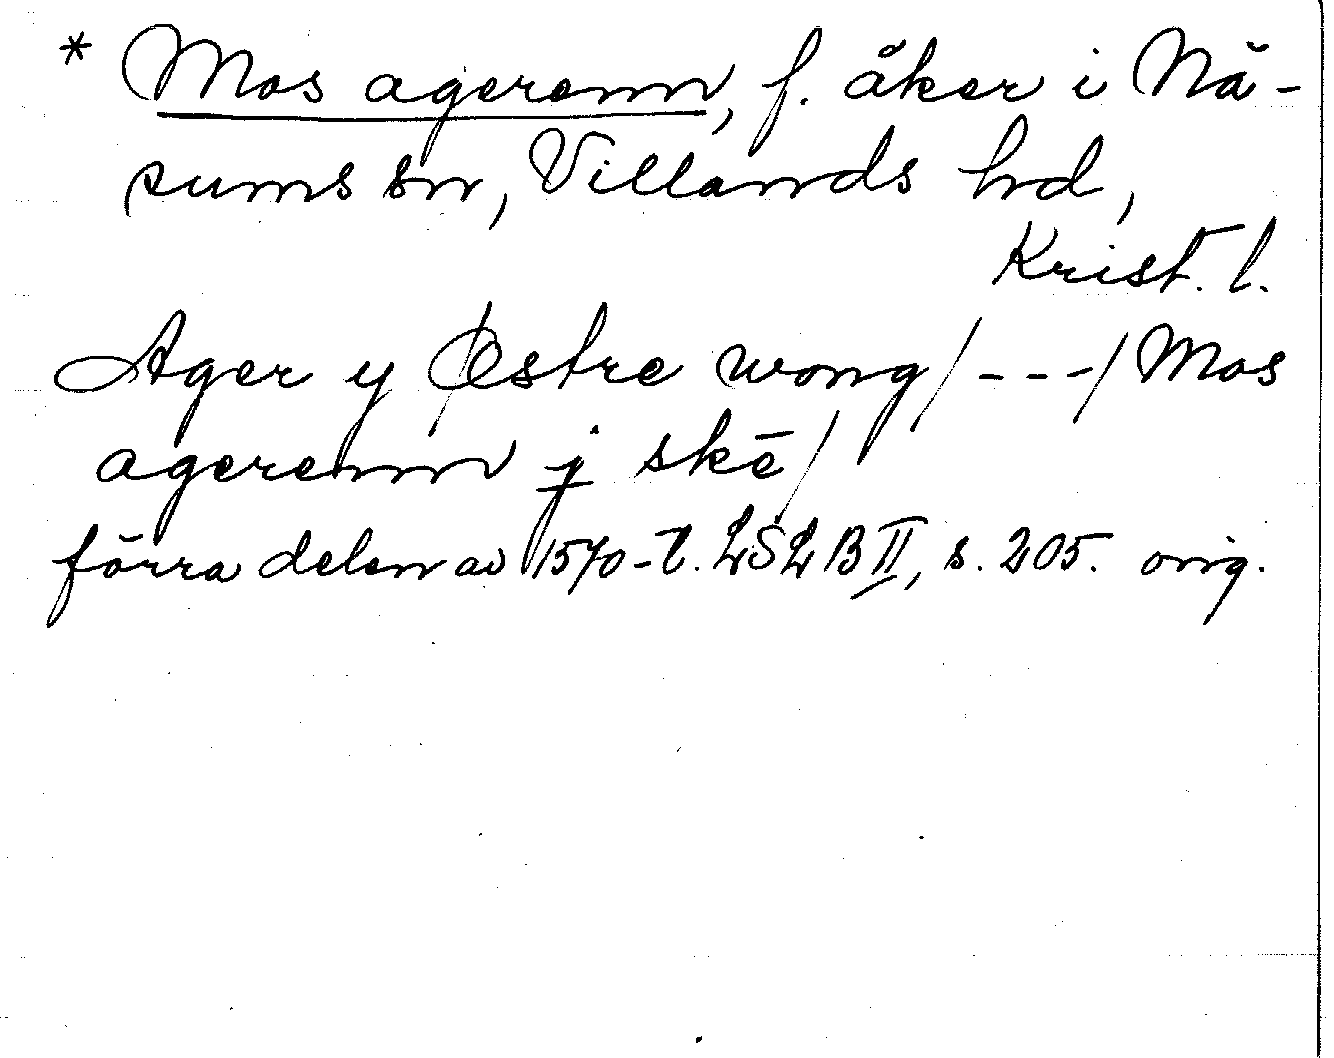 * Mos agerenn, f. åker i Nä-
sums sn, Villands hd,
Krist. l.
Ager y Østre wong/---/Mos
agerenn j skē/
förra delen av 1570-t. LSLB II, s. 205. orig.